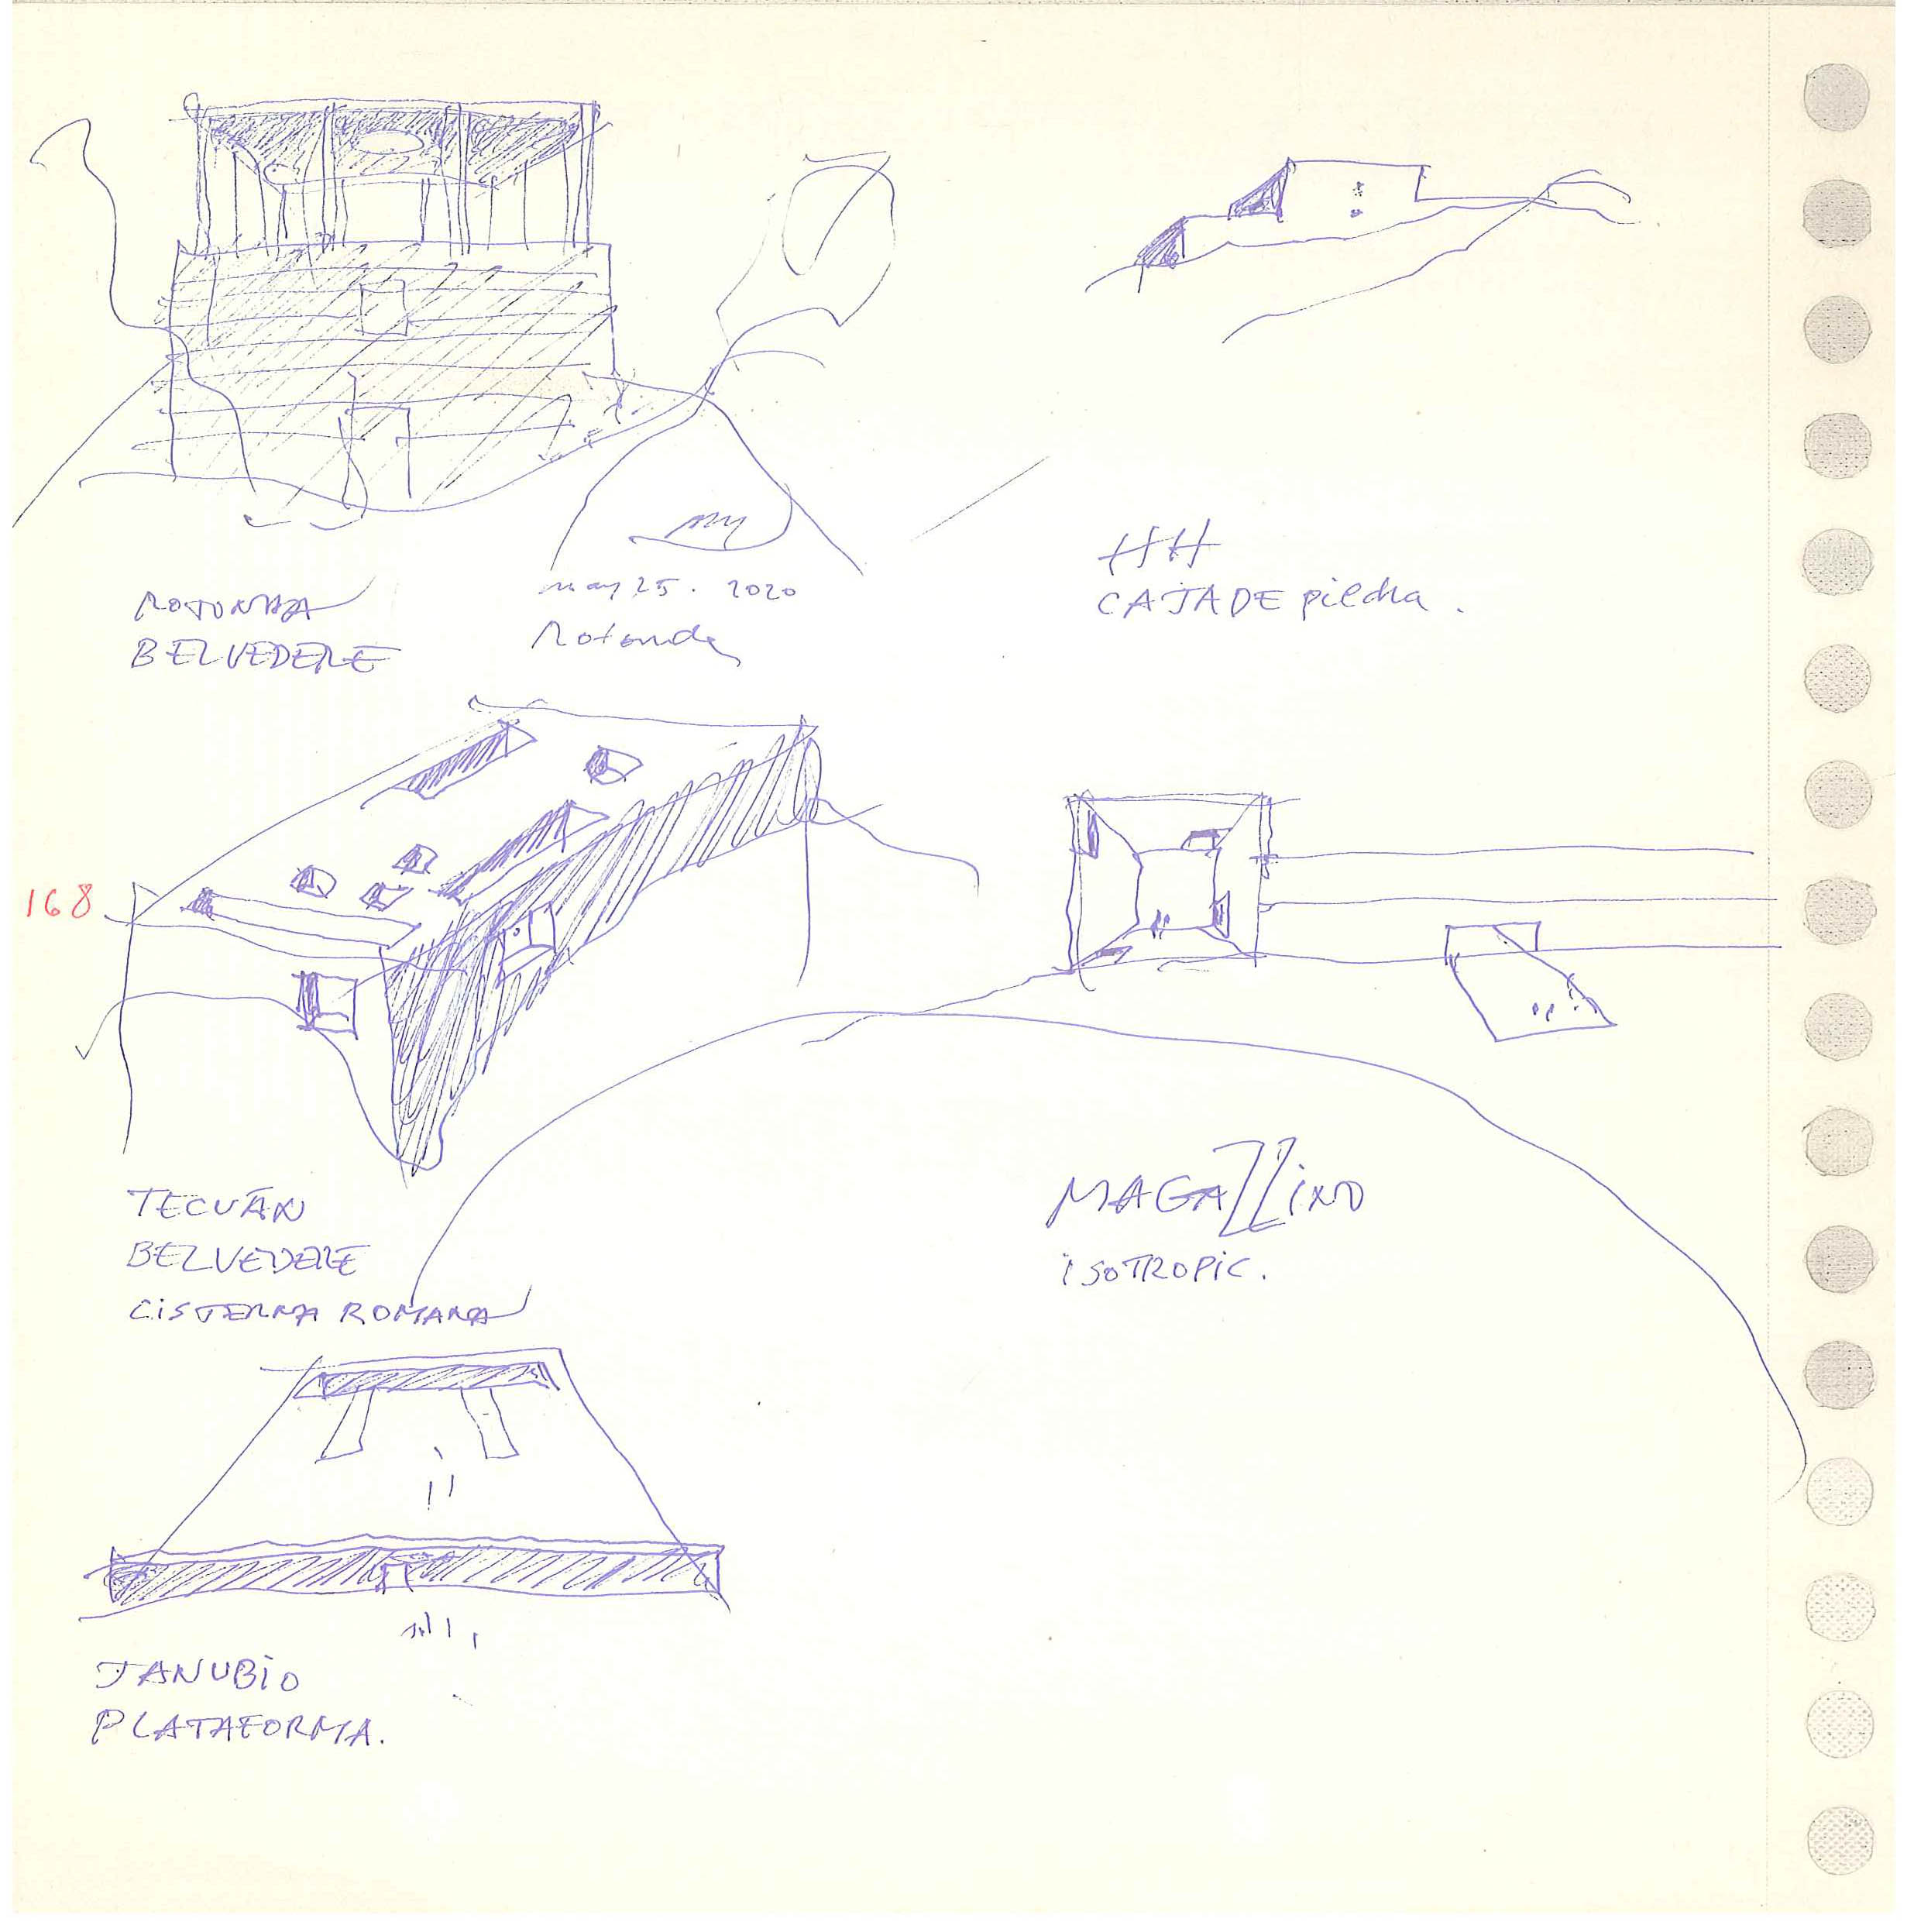 ROTONDA
BELVEDERE
may 25. 2020
Rotonda
HH
CAJA DE piedra.
168
TECUÁN
BELVEDERE
CISTERNA ROMANA
MAGAZZiNO
iSOTROPIC.
JANUBiO
PLATAFORMA.